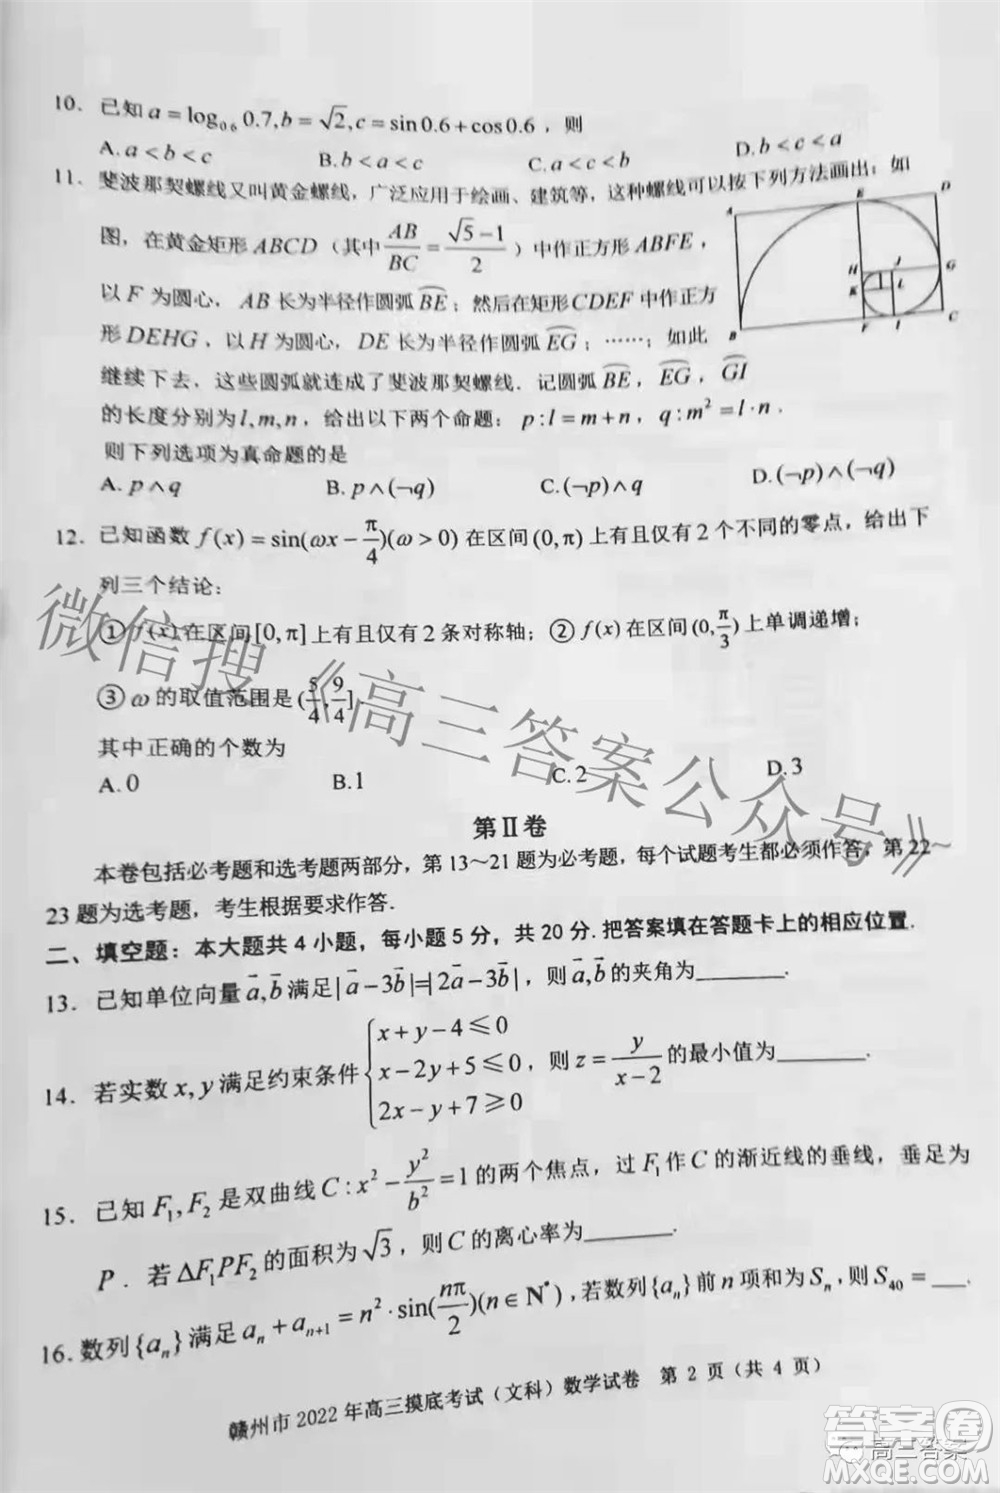 10. 已知 a = log₀.₆ 0.7, b = √2, c = sin0.6 + cos0.6，则
A. a < b < c  B. b < c < a  C. a < c < b  D. b < c < a
11. 斐波那契螺线又叫黄金螺线，广泛应用于绘画、建筑等，这种螺线可以按下列方法画出：如
图，在黄金矩形 ABCD（其中 AB/BC = (√5−1)/2）中作正方形 ABFE，
以 F 为圆心，AB 长为半径作圆弧 BE；然后在矩形 CDEF 中作正方
形 DEHG，以 H 为圆心，DE 长为半径作圆弧 EG；……；如此
继续下去，这些圆弧就连成了斐波那契螺线. 记圆弧 BE，EG，GI
的长度分别为 l, m, n，给出以下两个命题：p : l = m + n，q : m² = l · n.
则下列选项为真命题的是
A. p∧q  B. p∧(¬q)  C. (¬p)∧q  D. (¬p)∧(¬q)
A E D H J G K L F I C B
12. 已知函数 f(x) = sin(ωx − π/4)(ω > 0) 在区间 (0, π) 上有且仅有 2 个不同的零点，给出下
列三个结论：
① f(x) 在区间 [0, π] 上有且仅有 2 条对称轴；② f(x) 在区间 (0, π/3) 上单调递增；
③ ω 的取值范围是 (5/4, 9/4]
其中正确的个数为
A. 0  B. 1  C. 2  D. 3
微信搜《高三答案公众号》
第Ⅱ卷
本卷包括必考题和选考题两部分，第 13～21 题为必考题，每个试题考生都必须作答，第 22～
23 题为选考题，考生根据要求作答.
二、填空题：本大题共 4 小题，每小题 5 分，共 20 分. 把答案填在答题卡上的相应位置.
13. 已知单位向量 a, b 满足 |a − 3b| = |2a − 3b|，则 a, b 的夹角为________.
14. 若实数 x, y 满足约束条件 { x + y − 4 ≤ 0
x − 2y + 5 ≤ 0
2x − y + 7 ≥ 0，则 z = y/(x−2) 的最小值为________.
15. 已知 F₁, F₂ 是双曲线 C : x² − y²/b² = 1 的两个焦点，过 F₁ 作 C 的渐近线的垂线，垂足为
P . 若 ΔF₁PF₂ 的面积为 √3，则 C 的离心率为________.
16. 数列 {aₙ} 满足 aₙ + aₙ₊₁ = n² · sin(nπ/2)(n ∈ N*)，若数列 {aₙ} 前 n 项和为 Sₙ，则 S₄₀ = ___.
赣州市 2022 年高三摸底考试（文科）数学试卷 第 2 页（共 4 页）
答案圈
高三答案
MXQE.COM